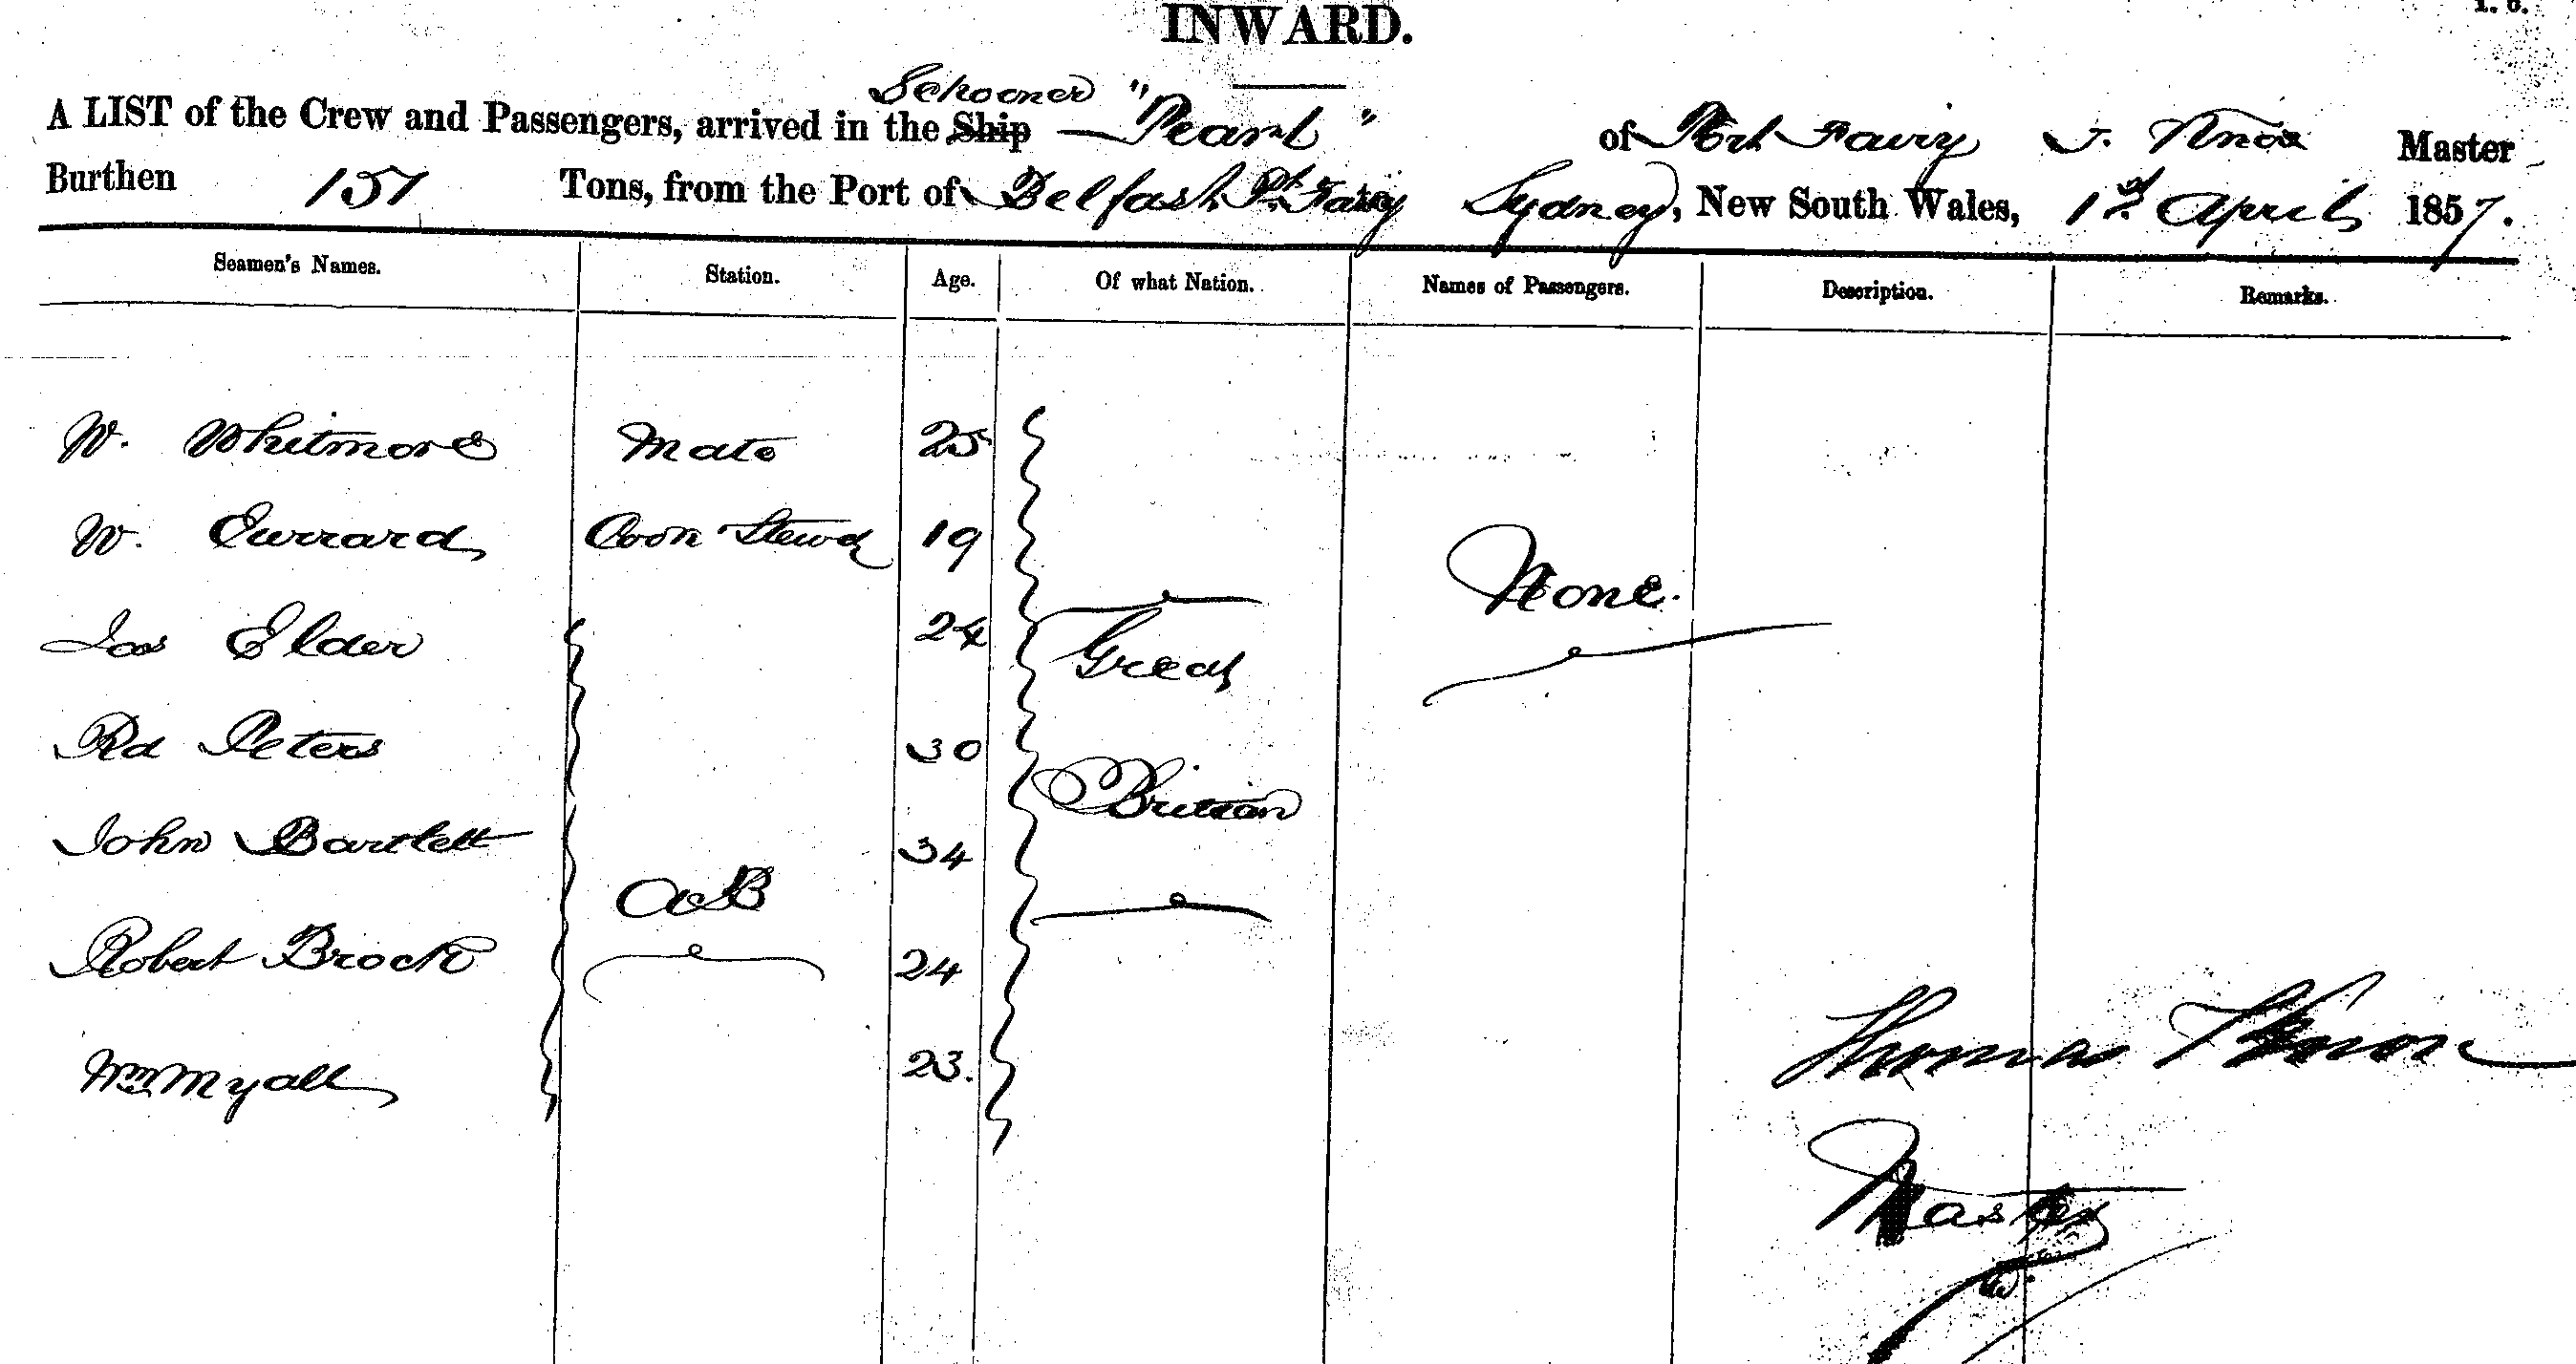 INWARD.
A LIST of the Crew and Passengers, arrived in the Ship Schooner "Pearl" of Port Fairy T. Knox Master
Burthen 151 Tons, from the Port of Belfast Pt. Fairy Sydney, New South Wales, 1st April 1857.
Seamen's Names. Station. Age. Of what Nation. Names of Passengers. Description. Remarks.
W. Whitmore Mate 25
W. Currard Cook Stewd 19
None.
Jas Elder 24 Great
Rd Peters 30
John Bartlett 34 Brittian
AB
Robert Brock 24
Wm Myall 23.
Thomas Knox
Master